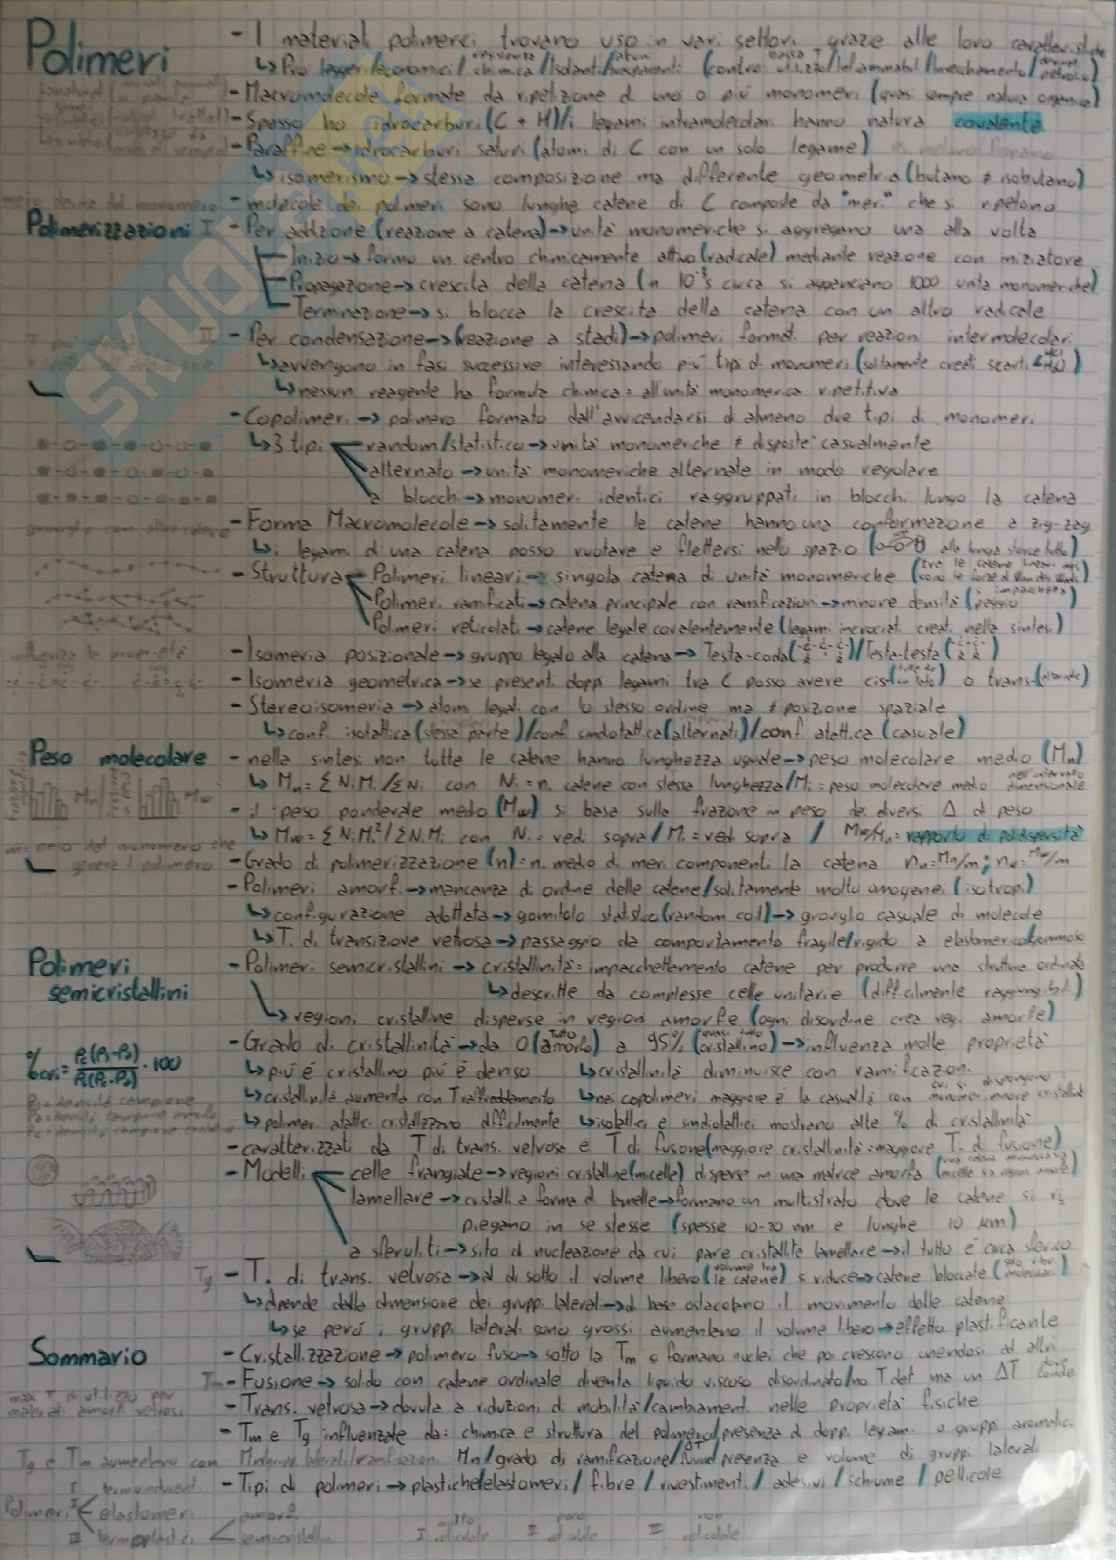 Polimeri
- I materiali polimerici trovano uso in vari settori grazie alle loro caratteristiche
↳ Più leggeri/economici/resistenza chimica/Isolanti/trasparenti (contro: bassa T utilizzo/Infiammabili/Invecchiamento/
- Macromolecole formate da ripetizione di uno o più monomeri (quasi sempre natura organica)
- Spesso ho idrocarburi (C + H)/i legami intramolecolari hanno natura covalente
- Paraffine → idrocarburi saturi (atomi di C con un solo legame)
↳ isomerismo → stessa composizione ma differente geometria (butano ≠ isobutano)
- molecole dei polimeri sono lunghe catene di C composte da "meri" che si ripetono
Polimerizzazioni I - Per addizione (reazione a catena) → unità monomeriche si aggregano una alla volta
Inizio → formo un centro chimicamente attivo (radicale) mediante reazione con iniziatore
Propagazione → crescita della catena (in 10⁻³ circa si agganciano 1000 unità monomeriche)
Terminazione → si blocca la crescita della catena con un altro radicale
II - Per condensazione → (reazione a stadi) → polimeri formati per reazioni intermolecolari
↳ avvengono in fasi successive interessando più tipi di monomeri (solitamente creati scarti H₂O)
↳ nessun reagente ha formula chimica = all'unità monomerica ripetitiva
- Copolimeri → polimero formato dall'avvicendarsi di almeno due tipi di monomeri
↳ 3 tipi random/statistico → unità monomeriche ≠ disposte casualmente
alternato → unità monomeriche alternate in modo regolare
a blocchi → monomeri identici raggruppati in blocchi lungo la catena
- Forma Macromolecole → solitamente le catene hanno una conformazione a zig-zag
↳ i legami di una catena posso ruotare e flettersi nello spazio
- Struttura Polimeri lineari → singola catena di unità monomeriche (tra le catene lineari
Polimeri ramificati → catena principale con ramificazioni → minore densità (impacchetta peggio)
Polimeri reticolati → catene legate covalentemente (legami incrociati creati nella sintesi)
- Isomeria posizionale → gruppo legato alla catena → Testa-coda / Testa-testa
- Isomeria geometrica → se presenti doppi legami tra C posso avere cis o trans
- Stereoisomeria → atomi legati con lo stesso ordine ma ≠ posizione spaziale
↳ conf. isotattica (stessa parte)/conf. sindiotattica (alternati)/conf atattica (casuale)
Peso molecolare - nella sintesi non tutte le catene hanno lunghezza uguale → peso molecolare medio (Mn)
↳ Mn = Σ NiMi / ΣNi con Ni = n. catene con stessa lunghezza/Mi = peso molecolare medio nell'intervallo dimensionale
- il peso ponderale medio (Mw) si basa sulla frazione in peso dei diversi Δ di peso
↳ Mw = Σ NiMi² / ΣNiMi con Ni = vedi sopra / Mi = vedi sopra / Mw/Mn = rapporto di polidispersità
- Grado di polimerizzazione (n) = n. medio di meri componenti la catena nn = Mn/m ; nw = Mw/m
- Polimeri amorfi → mancanza di ordine delle catene/solitamente molto omogenei (isotropi)
↳ configurazione adottata → gomitolo statistico (random coil) → groviglio casuale di molecole
↳ T. di transizione vetrosa → passaggio da comportamento fragile/rigido a elastomerico/gommoso
Polimeri semicristallini
- Polimeri semicristallini → cristallinità = impacchettamento catene per produrre una struttura ordinata
↳ descritte da complesse celle unitarie (difficilmente raggiungibili)
↳ regioni cristalline disperse in regioni amorfe (ogni disordine crea reg. amorfe)
- Grado di cristallinità → da 0 (tutto amorfo) a 95% (quasi tutto cristallino) → influenza molte proprietà
% cri = ρc(ρs-ρa) / ρs(ρc-ρa) · 100
↳ più è cristallino più è denso ↳ cristallinità diminuisce con ramificazioni
↳ cristallinità aumenta con T raffreddamento ↳ nei copolimeri maggiore è la casualità con cui si dispongono i monomeri, minore cristallinità
↳ polimeri atattici cristallizzano difficilmente ↳ isotattici e sindiotattici mostrano alte % di cristallinità
- caratterizzati da T di trans. vetrosa e T di fusione (maggiore cristallinità = maggiore T. di fusione)
- Modelli celle frangiate → regioni cristalline (micelle) disperse in una matrice amorfa
lamellare → cristalli a forma di lamelle → formano un multistrato dove le catene si ri-
piegano in se stesse (spesse 10-20 nm e lunghe 10 µm)
a sferuliti → sito di nucleazione da cui parte cristallite lamellare → il tutto è circa sferico
Tg - T. di trans. vetrosa → al di sotto il volume libero (volume tra le catene) si riduce → catene bloccate (solo vibr. molecolari)
↳ dipende dalla dimensione dei gruppi laterali → di base ostacolano il movimento delle catene
↳ se però i gruppi laterali sono grossi aumentano il volume libero → effetto plastificante
Sommario - Cristallizzazione → polimero fuso → sotto la Tm si formano nuclei che poi crescono unendosi ad altri
Tm - Fusione → solido con catene ordinate diventa liquido viscoso disordinato/no T def ma un ΔT
- Trans. vetrosa → dovuta a riduzioni di mobilità/cambiamenti nelle proprietà fisiche
max T di utilizzo per
materiali amorfi vetrosi
- Tm e Tg influenzate da: chimica e struttura del polimero/presenza di doppi legami o gruppi aromatici
Tg e Tm aumentano con Mn/grado di ramificazione/presenza e volume di gruppi laterali
- Tipi di polimeri → plastiche/elastomeri / fibre / rivestimenti / adesivi / schiume / pellicole
Polimeri I termoindurenti
II elastomeri
III termoplastici amorfi
semicristallini
I molto reticolate II poco reticolate III non reticolate